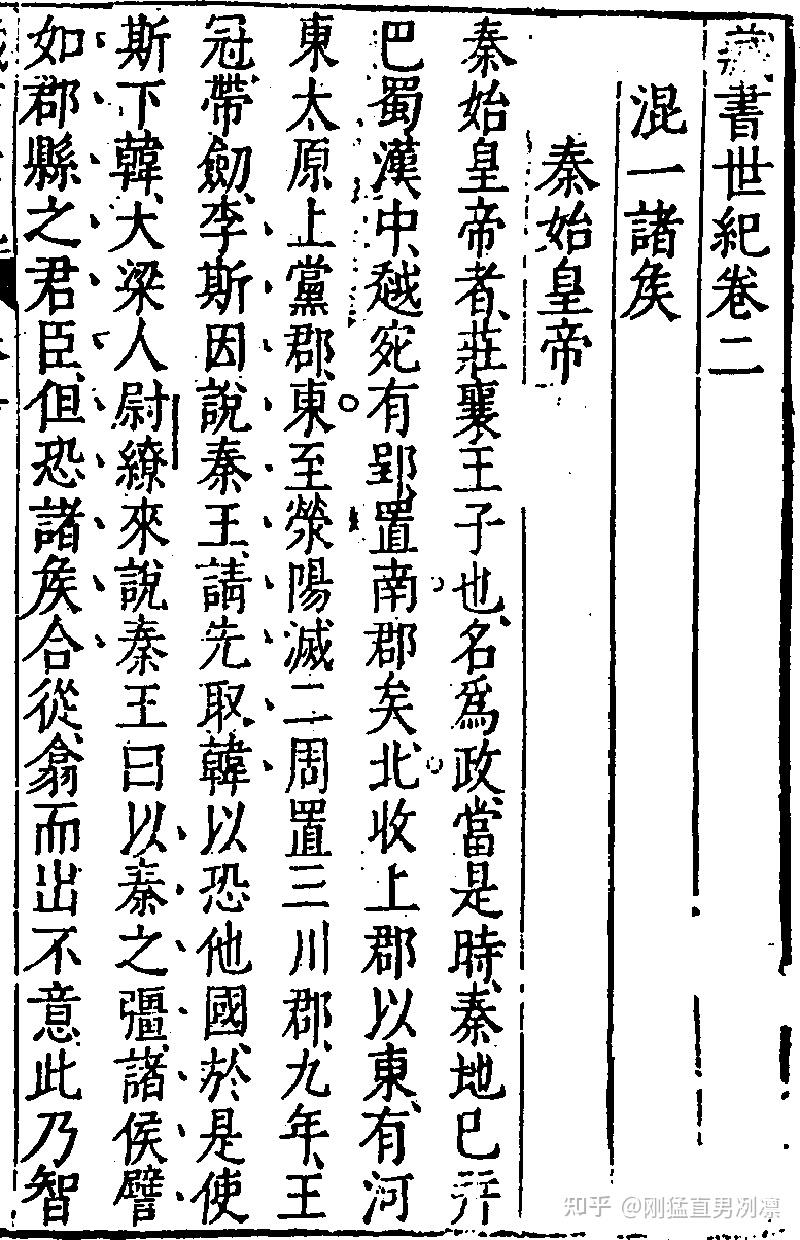 藏書世紀卷二
混一諸矦
秦始皇帝
秦始皇帝者、莊襄王子也、名爲政、當是時、秦地已幷
巴蜀漢中、越宛有郢、置南郡矣、北收上郡以東、有河
東太原上黨郡、東至滎陽滅二周置三川郡、九年、王
冠帶劒、李斯因說秦王、請先取韓以恐他國、於是使
斯下韓、大梁人尉繚來說秦王曰以秦之彊、諸侯譬
如郡縣之君臣、但恐諸矦合從、翕而出不意、此乃智
知乎 @刚猛直男冽凛